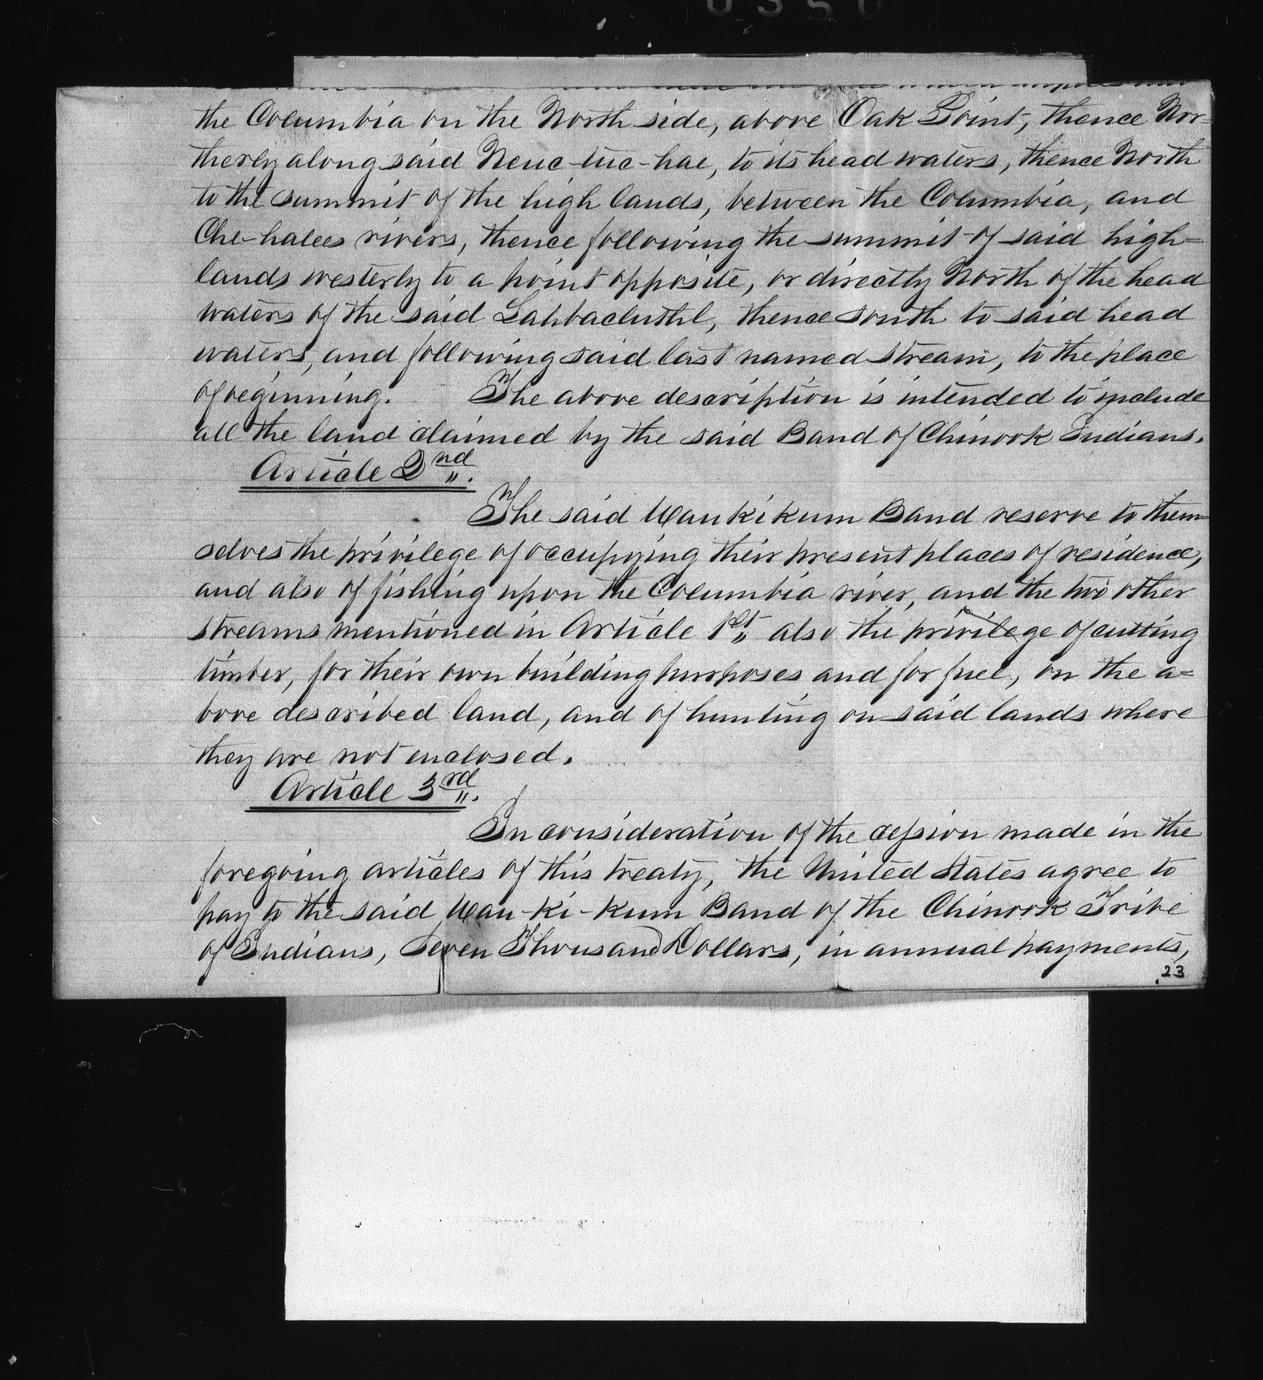 0350
the Columbia on the North side, above Oak Point, thence Nor=
therly along said Neuc-tuc-hae, to its head waters, thence North
to the summit of the high lands, between the Columbia, and
Che-halees rivers, thence following the summit of said high=
lands westerly to a point opposite, or directly North of the head
waters of the said Lahbacluthl, thence South to said head
waters, and following said last named stream, to the place
of beginning. The above description is intended to include
all the land claimed by the said Band of Chinook Indians.
Article 2nd.
The said Waukikum Band reserve to them
selves the privilege of occupying their present places of residence,
and also of fishing upon the Columbia river, and the two other
streams mentioned in Article 1st also the privilege of cutting
timber, for their own building purposes and for fuel, on the a=
bove described land, and of hunting on said lands where
they are not enclosed.
Article 3rd.
In consideration of the cession made in the
foregoing articles of this treaty, the United States agree to
pay to the said Wau-ki-kum Band of the Chinook Tribe
of Indians, Seven Thousand Dollars, in annual payments,
23